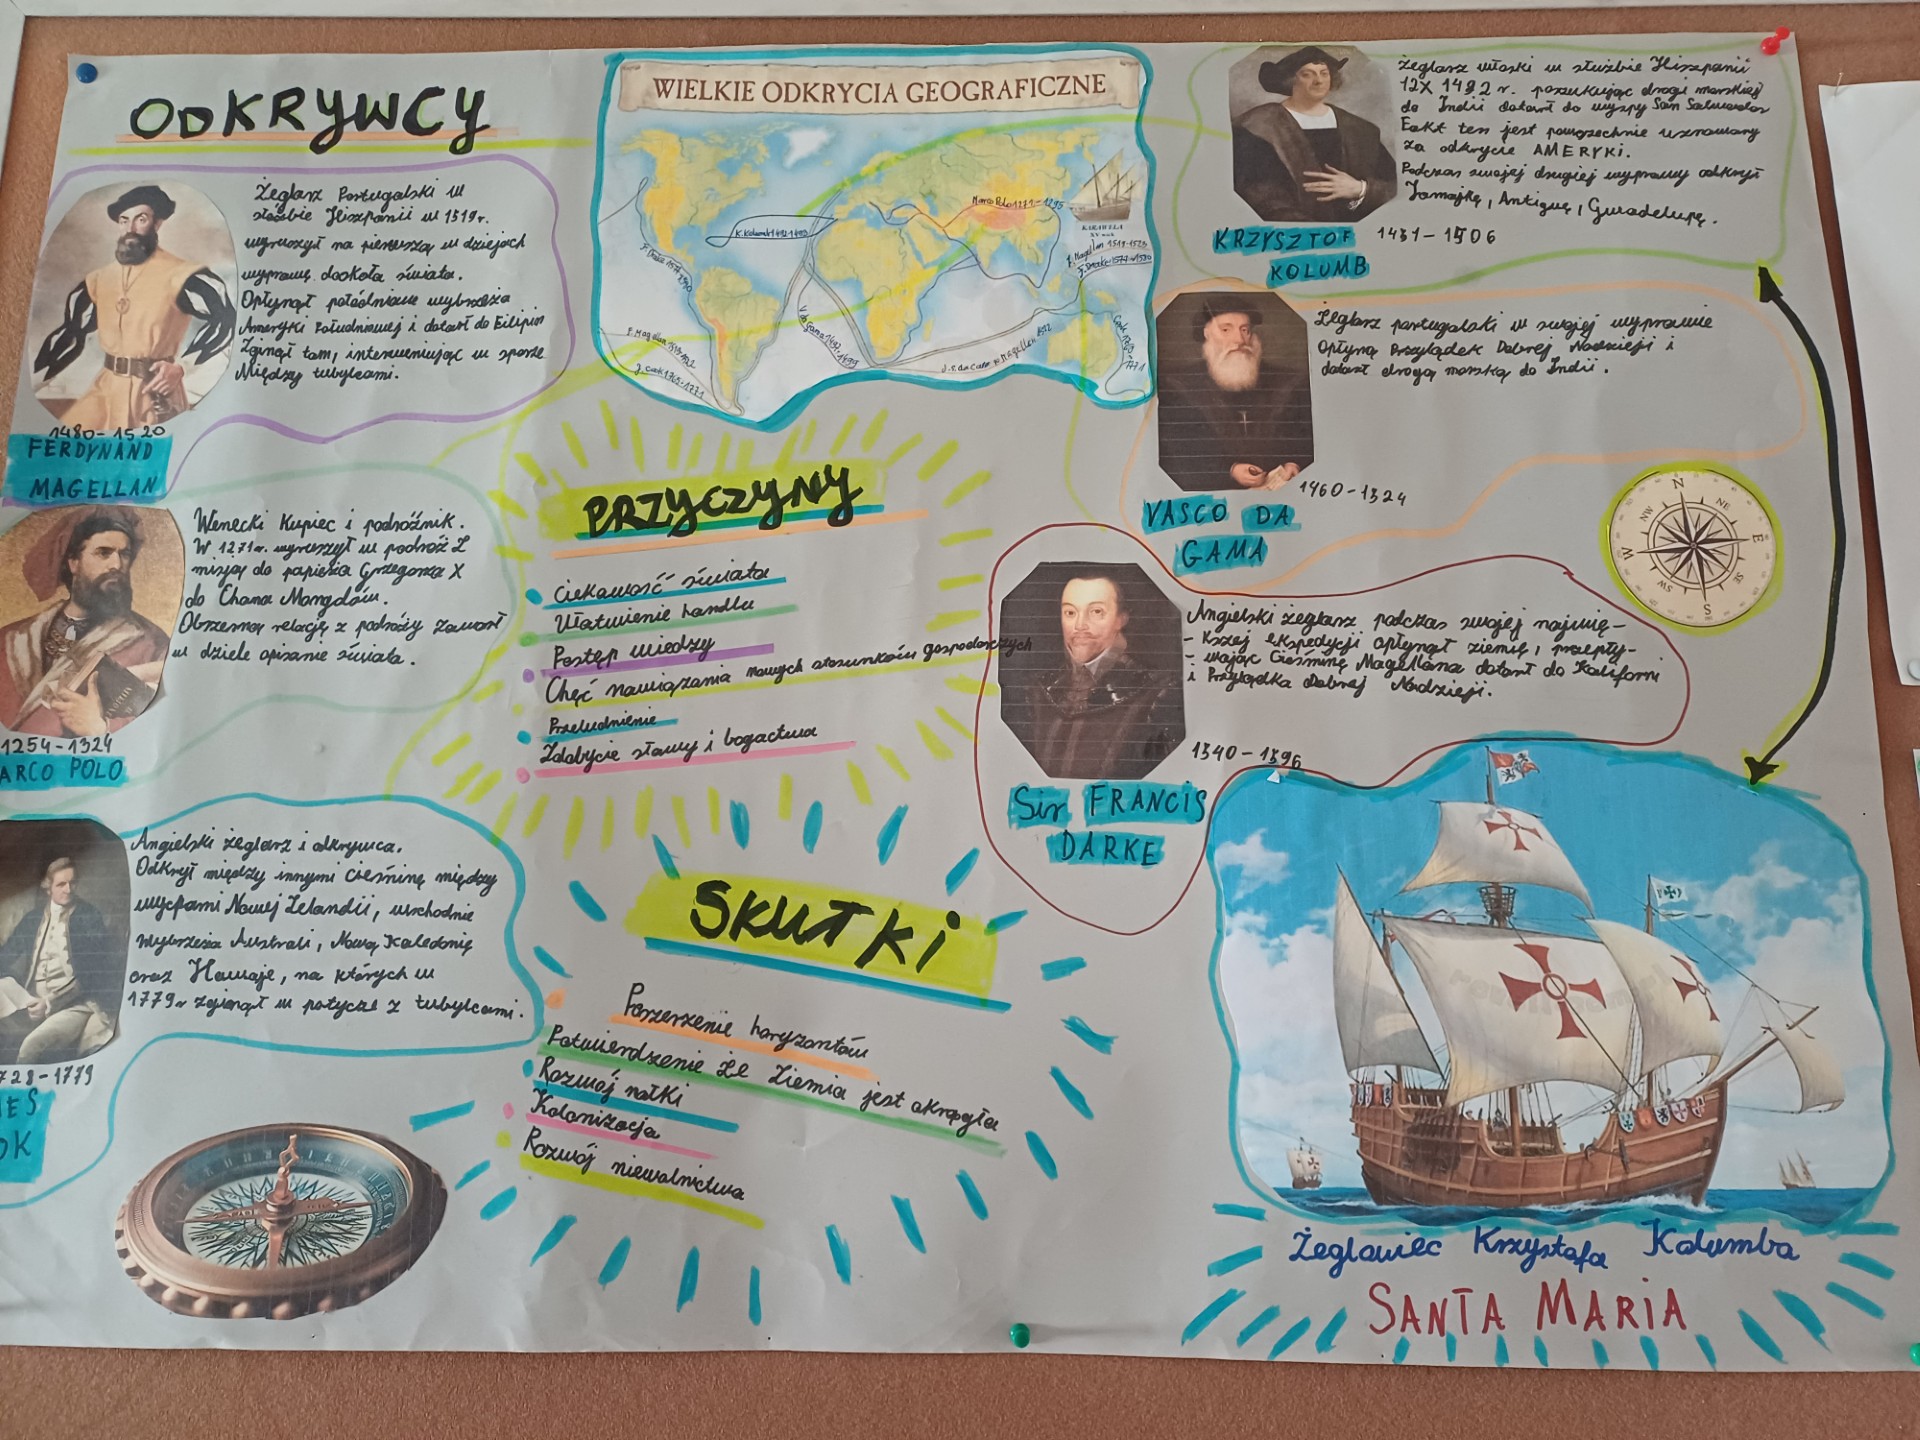 ODKRYWCY
Żeglarz Portugalski w
służbie Hiszpanii w 1519r.
wyruszył na pierwszą w dziejach
wyprawę dookoła świata.
Opłynął południowe wybrzeża
Ameryki Południowej i dotarł do Filipin
Zginął tam, interweniując w sporze
Między tubylcami.
1480-1520
FERDYNAND
MAGELLAN
Wenecki Kupiec i podróżnik.
W 1271r. wyruszył w podróż Z
misją do papieża Grzegorza X
do Chana Mongołów.
Obszerną relację z podróży zawarł
w dziele opisanie świata.
1254-1324
ARCO POLO
Angielski żeglarz i odkrywca.
Odkrył między innymi cieśninę między
wyspami Nowej Zelandii, wschodnie
wybrzeża Australi, Nową Kaledonię
oraz Hawaje, na których w
1779r zginął w potyczce z tubylcami.
728-1779
ES
OK
WIELKIE ODKRYCIA GEOGRAFICZNE
Marco Polo 1271-1295
K. Kolumb 1492-1493
KARAWELA
XV wiek
F. Magellan 1519-1522
F. Drake 1577-1580
F. Drake 1577-1580
V. da Gama 1497-1499
F. Magellan 1519-1522
J. Cook 1768-1771
PRZYCZYNY
Ciekawość świata
Ułatwienie handlu
Postęp wiedzy
Chęć nawiązania nowych stosunków gospodarczych
Przeludnienie
Zdobycie sławy i bogactwa
SKUTKI
Poszerzenie horyzontów
Potwierdzenie że Ziemia jest okrągła
Rozwój nałki
Kolonizacja
Rozwój niewolnictwa
żeglarz włoski w służbie Hiszpanii
12X 1492r. poszukując drogi morskiej
do Indii dotarł do wyspy San Salwador
Fakt ten jest powszechnie uznawany
za odkrycie AMERYKI.
Podczas swojej drugiej wyprawy odkrył
Jamajkę, Antiguę, Gwadelupę.
KRZYSZTOF 1451-1506
KOLUMB
Żeglarz portugalski w swojej wyprawie
opłyną Przylądek Dobrej Nadzieji i
dotarł drogą morską do Indii.
1460-1524
VASCO DA
GAMA
N
NE
E
SE
S
SW
W
NW
Angielski żeglarz podczas swojej najwię-
- kszej ekspedycji opłynął ziemię, przepły-
- wając Cieśninę Magellana dotarł do Kaliforni
i Przylądka Dobrej Nadzieji.
1540-1596
Sir FRANCIS
DARKE
Żeglowiec Krzysztofa Kolumba
SANTA MARIA